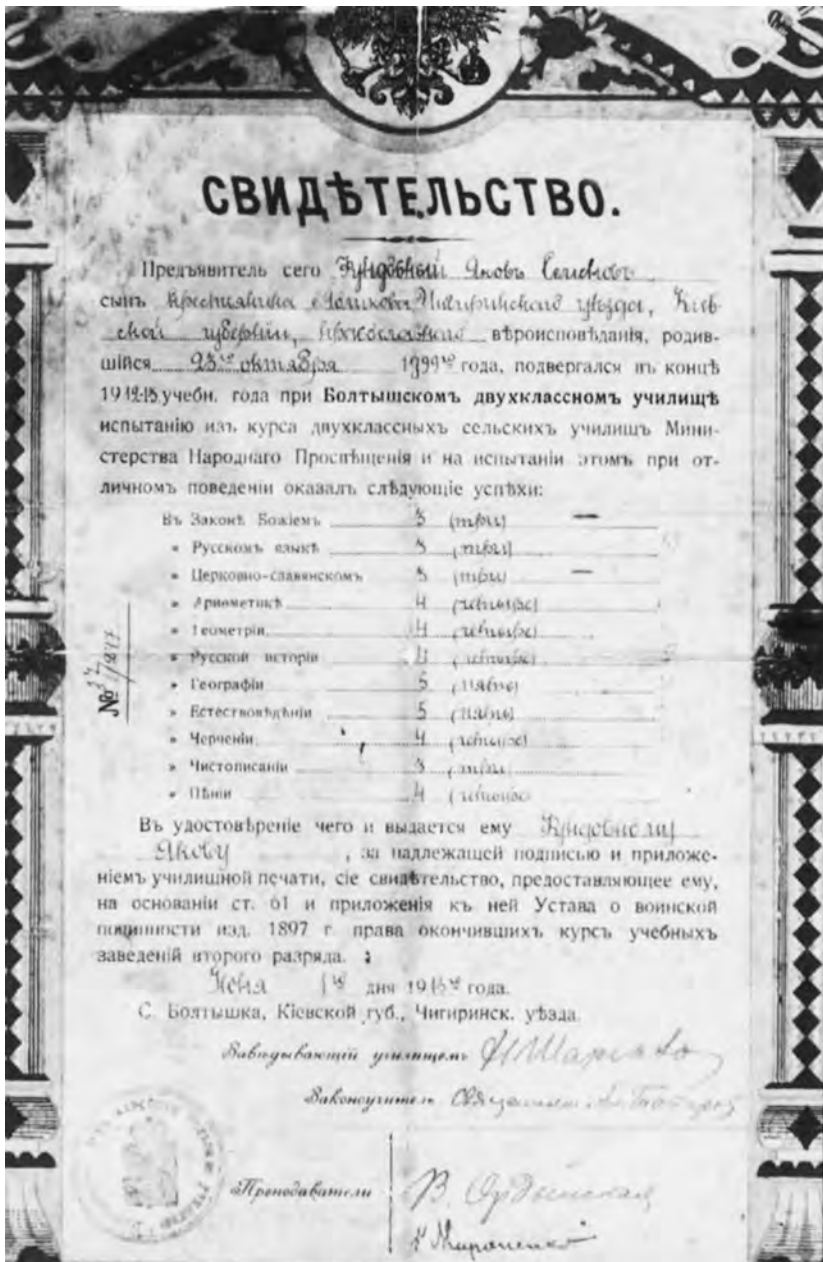 СВИДѢТЕЛЬСТВО.
Предъявитель сего Яковъ Семеновъ
сынъ крестьянина Чигиринскаго уѣзда, Кiев-
ской губернiи, православнаго вѣроисповѣданiя, родив-
шiйся 23го октября 1899го года, подвергался въ концѣ
1912-13 учебн. года при Болтышскомъ двухклассномъ училищѣ
испытанiю изъ курса двухклассныхъ сельскихъ училищъ Мини-
стерства Народнаго Просвѣщенiя и на испытанiи этомъ при от-
личномъ поведенiи оказалъ слѣдующiе успѣхи:
Въ Законѣ Божiемъ 3 (три) —
" Русскомъ языкѣ 3 (три)
" Церковно-славянскомъ 3 (три) —
" Ариѳметикѣ 4 (четыре)
" Геометрiи 4 (четыре)
" Русской исторiи 4 (четыре)
" Географiи 5 (пять)
" Естествовѣдѣнiи 5 (пять)
" Черченiи 4 (четыре)
" Чистописанiи 3 (три)
" Пѣнiи 4 (четыре)
№
Въ удостовѣренiе чего и выдается ему
Якову, за надлежащей подписью и приложе-
нiемъ училищной печати, сiе свидѣтельство, предоставляющее ему,
на основанiи ст. 61 и приложенiя къ ней Устава о воинской
повинности изд. 1897 г. права окончившихъ курсъ учебныхъ
заведенiй второго разряда.
Iюня 1го дня 1913го года.
С. Болтышка, Кiевской губ., Чигиринск. уѣзда.
Завѣдывающiй училищемъ
Законоучитель Священникъ
Преподаватели В. Ордынская
Мироненко